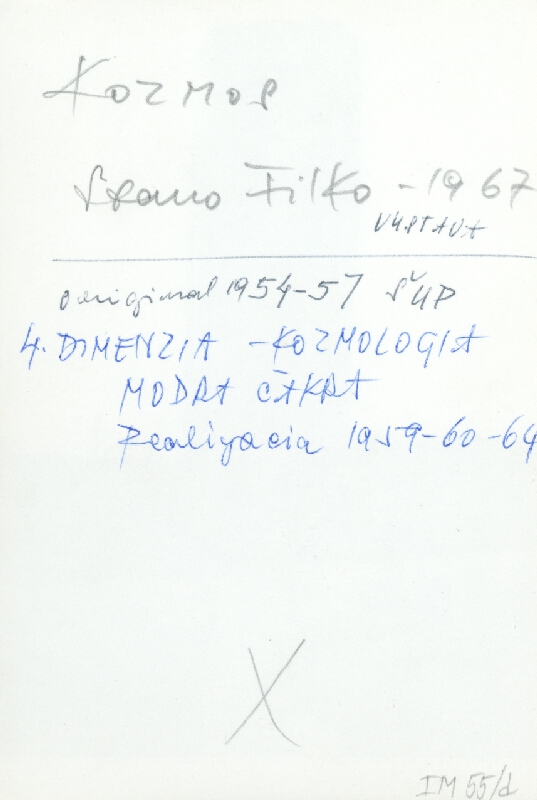 Kozmos
Stano Filko - 1967
VÝSTAVA
original 1954-57 ŠUP
4. DIMENZIA - KOZMOLOGIA
MODRA ČAKRA
Realizacia 1959-60-64
X
IM 55/d